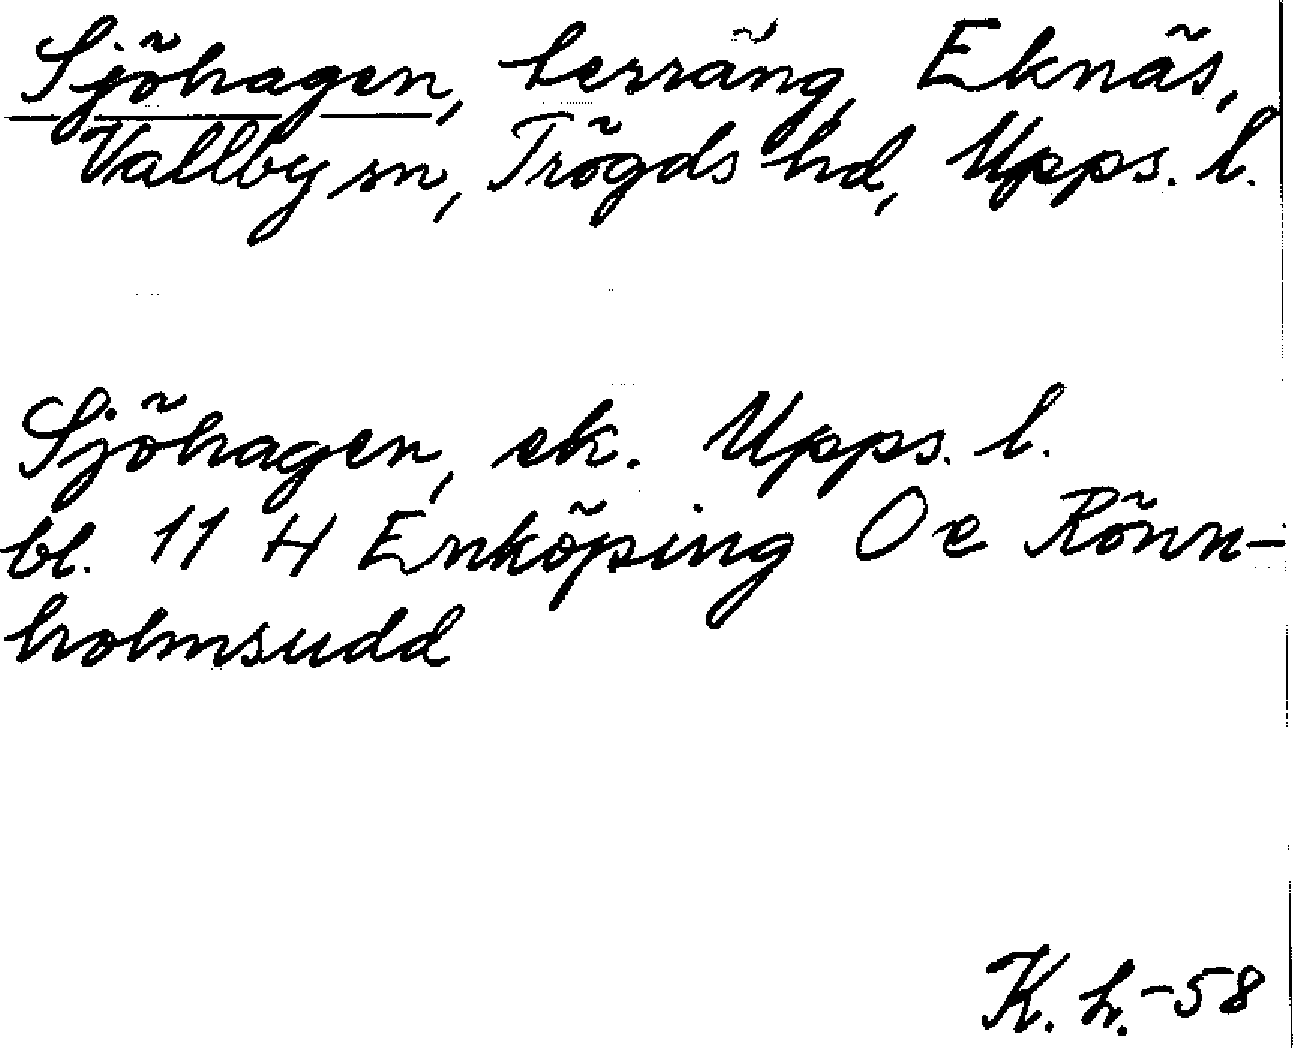 Sjöhagen, terräng, Eknäs,
Vallby sn, Trögds hd, Upps. l.
Sjöhagen, ek. Upps. l.
bl. 11 H Enköping Oe Rönn-
holmsudd
K. h.-58